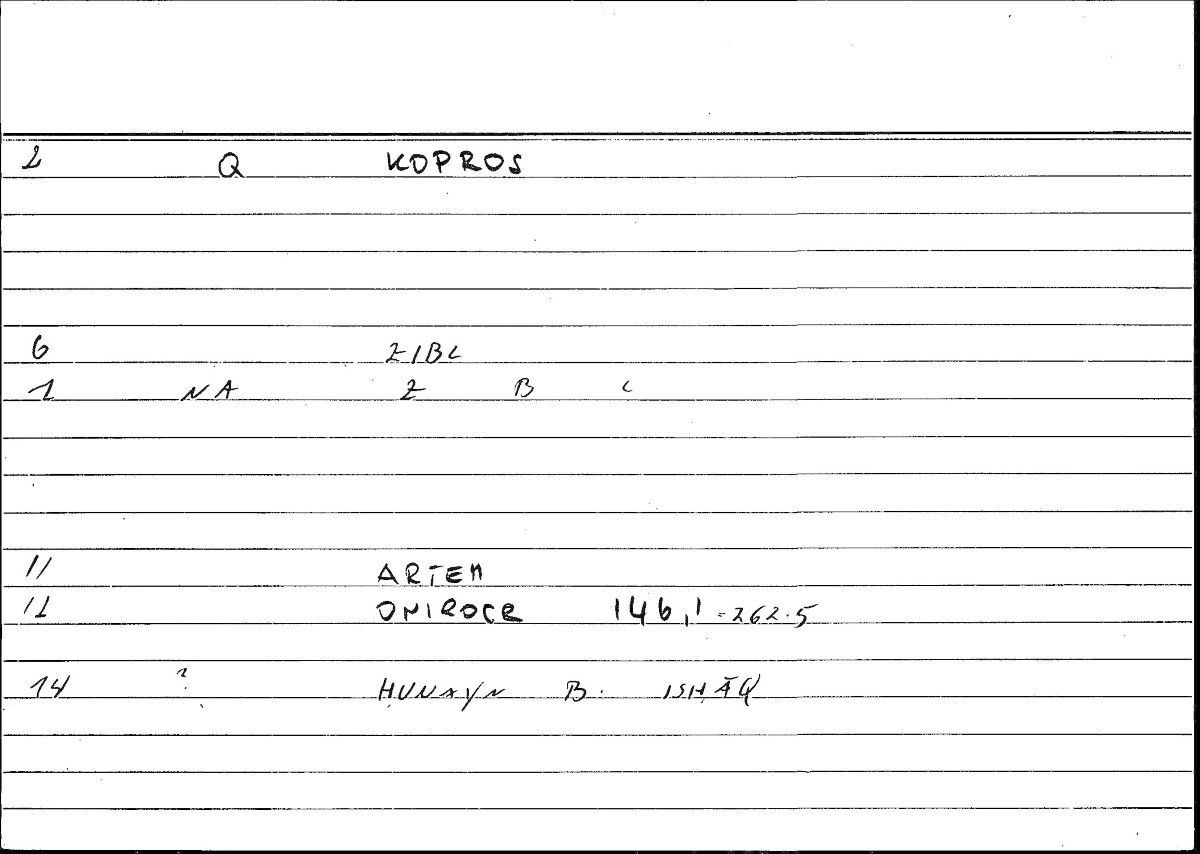 2 Q KOPROS
6 ZIBL
1 NA Z B L
11 ARTEM
12 ONIROCR 146,1 = 262.5
14 ? ḤUNAYN B. ISḤĀQ